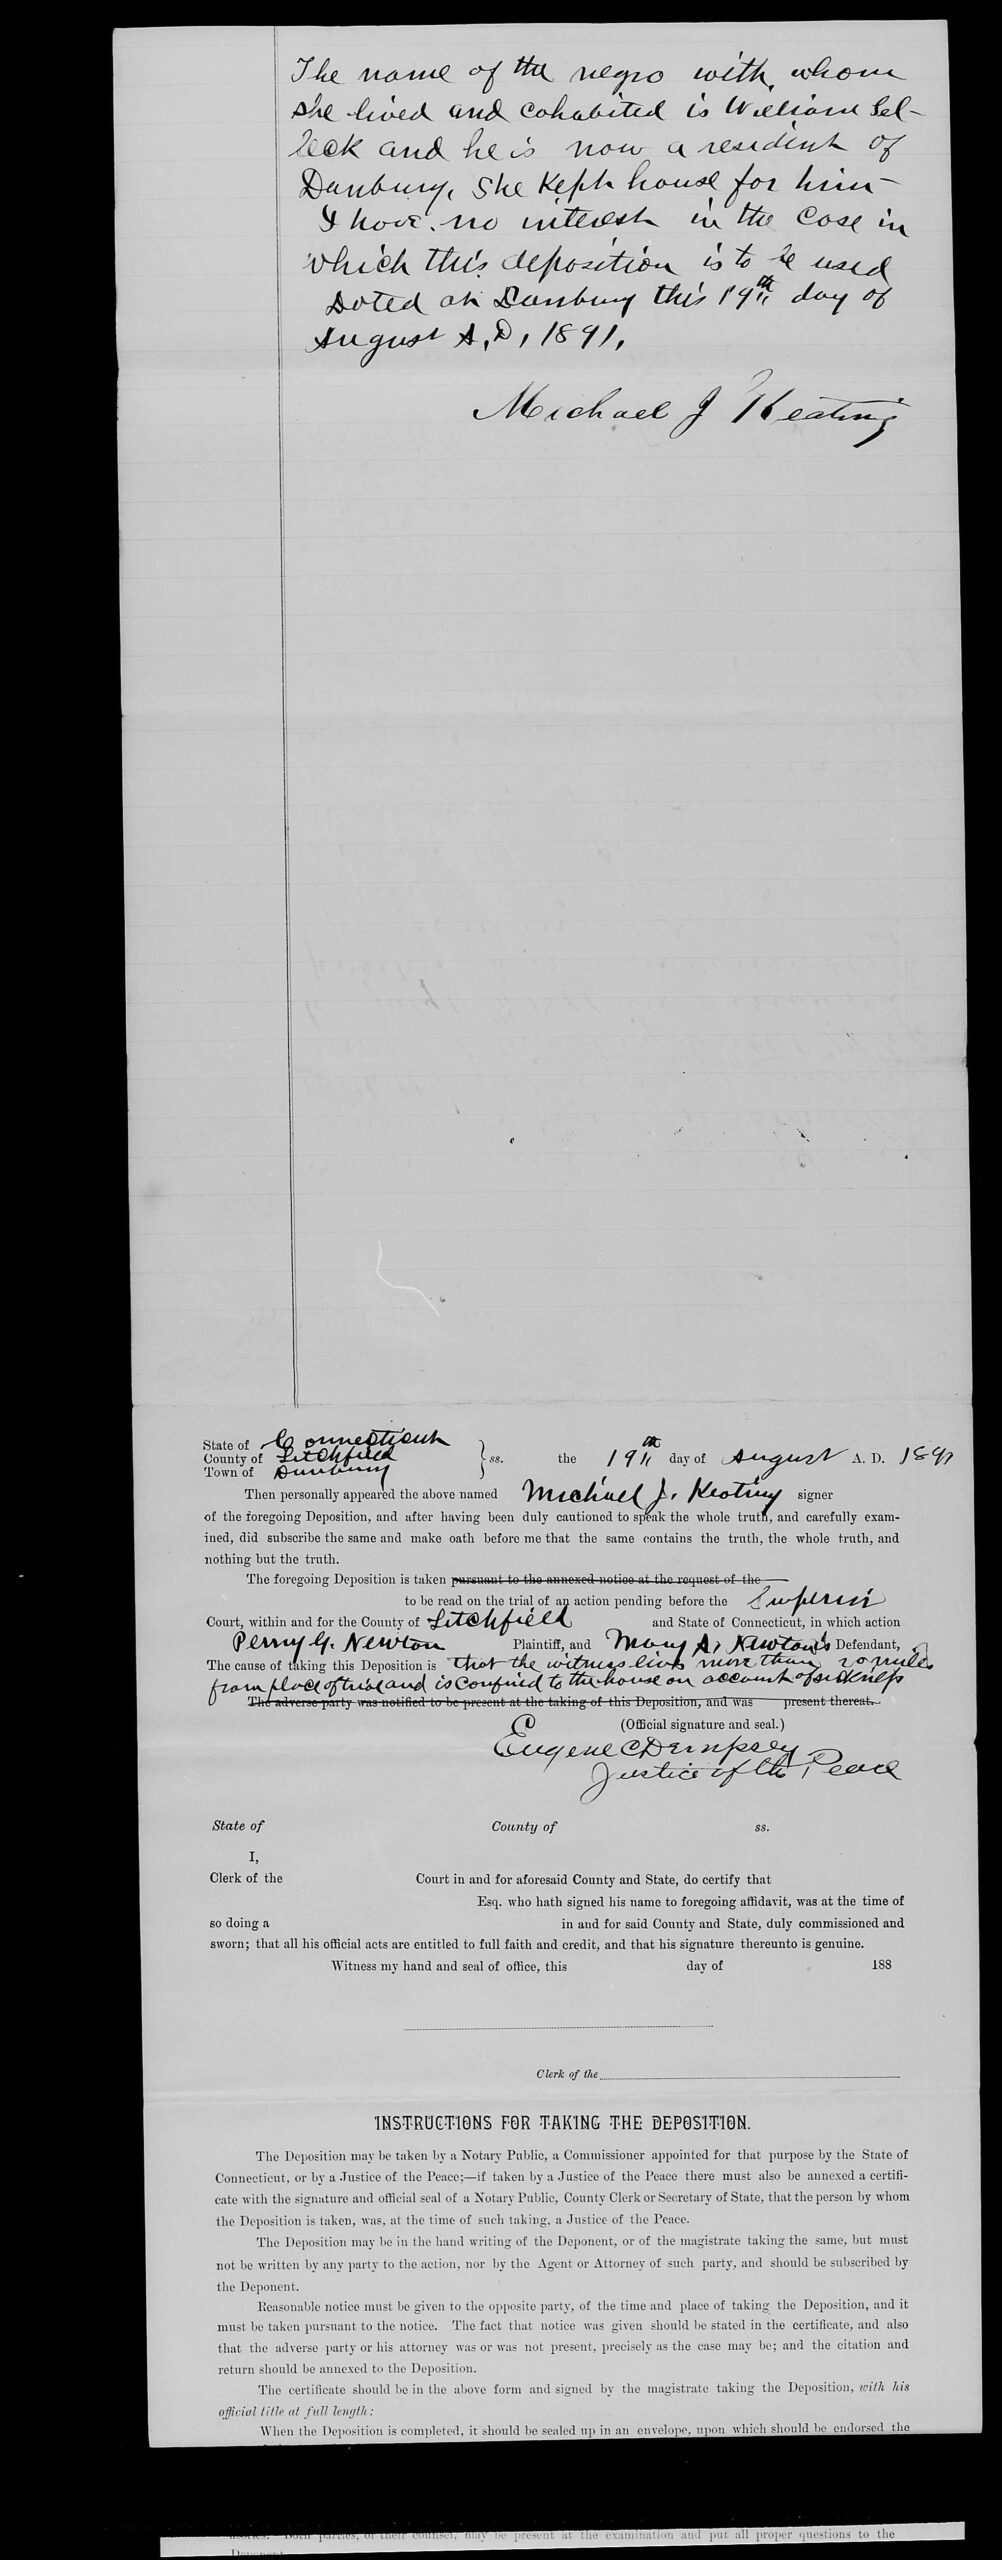 The name of the negro with whom
she lived and cohabited is William Sel-
leck and he is now a resident of
Danbury, She Kept house for him -
I have no interest in the case in
which this deposition is to be used
Dated at Danbury this 19th day of
August A, D, 1891,
Michael J Keating
State of Connecticut
County of Litchfield } ss. the 19th day of August A. D. 1891
Town of Danbury
Then personally appeared the above named Michael J. Keating signer
of the foregoing Deposition, and after having been duly cautioned to speak the whole truth, and carefully exam-
ined, did subscribe the same and make oath before me that the same contains the truth, the whole truth, and
nothing but the truth.
The foregoing Deposition is taken pursuant to the annexed notice at the request of the
to be read on the trial of an action pending before the Superior
Court, within and for the County of Litchfield and State of Connecticut, in which action
Perry G. Newton Plaintiff, and Mary A. Newton is Defendant,
The cause of taking this Deposition is that the witness lives more than 20 miles
from place of trial and is confined to the house on account of sickness
The adverse party was notified to be present at the taking of this Deposition, and was present thereat.
(Official signature and seal.)
Eugene C Dempsey
Justice of the Peace
State of County of ss.
I,
Clerk of the Court in and for aforesaid County and State, do certify that
Esq. who hath signed his name to foregoing affidavit, was at the time of
so doing a in and for said County and State, duly commissioned and
sworn; that all his official acts are entitled to full faith and credit, and that his signature thereunto is genuine.
Witness my hand and seal of office, this day of 188
Clerk of the
INSTRUCTIONS FOR TAKING THE DEPOSITION.
The Deposition may be taken by a Notary Public, a Commissioner appointed for that purpose by the State of
Connecticut, or by a Justice of the Peace;—if taken by a Justice of the Peace there must also be annexed a certifi-
cate with the signature and official seal of a Notary Public, County Clerk or Secretary of State, that the person by whom
the Deposition is taken, was, at the time of such taking, a Justice of the Peace.
The Deposition may be in the hand writing of the Deponent, or of the magistrate taking the same, but must
not be written by any party to the action, nor by the Agent or Attorney of such party, and should be subscribed by
the Deponent.
Reasonable notice must be given to the opposite party, of the time and place of taking the Deposition, and it
must be taken pursuant to the notice. The fact that notice was given should be stated in the certificate, and also
that the adverse party or his attorney was or was not present, precisely as the case may be; and the citation and
return should be annexed to the Deposition.
The certificate should be in the above form and signed by the magistrate taking the Deposition, with his
official title at full length:
When the Deposition is completed, it should be sealed up in an envelope, upon which should be endorsed the
Both parties, or their counsel, may be present at the examination and put all proper questions to the